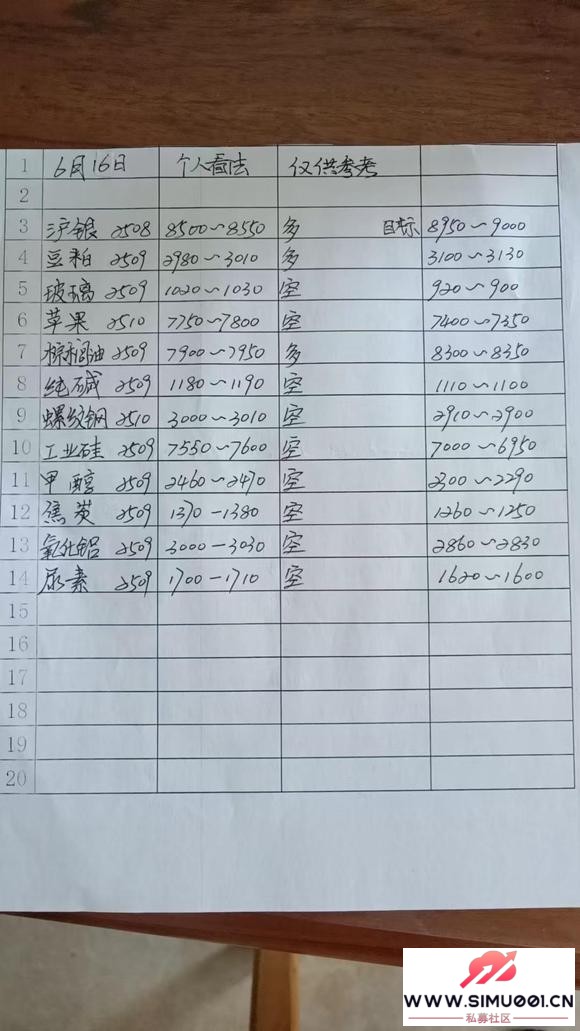 1 6月16日 个人看法 仅供参考
2
3 沪银 2508 8500~8550 多 目标 8950~9000
4 豆粕 2509 2980~3010 多 3100~3130
5 玻璃 2509 1020~1030 空 920~900
6 苹果 2510 7750~7800 空 7400~7350
7 棕榈油 2509 7900~7950 多 8300~8350
8 纯碱 2509 1180~1190 空 1110~1100
9 螺纹钢 2510 3000~3010 空 2910~2900
10 工业硅 2509 7550~7600 空 7000~6950
11 甲醇 2509 2460~2470 空 2300~2290
12 焦炭 2509 1370-1380 空 1260~1250
13 氧化铝 2509 3000-3030 空 2860~2830
14 尿素 2509 1700-1710 空 1620~1600
15
16
17
18
19
20
WWW.SIMU001.CN
私募社区